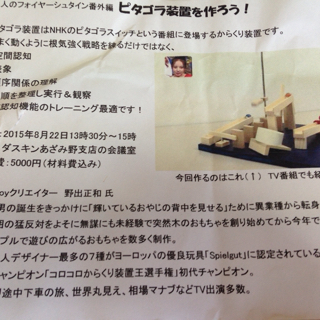 人のフォイヤーシュタイン番外編 ピタゴラ装置を作ろう！
タゴラ装置はNHKのピタゴラスイッチという番組に登場するからくり装置です。
まく動くように根気強く戦略を練るだけではなく、
空間認知
表象
序関係の理解
順を整理し実行＆観察
認知機能のトレーニング最適です！
：2015年8月22日13時30分～15時
ダスキンあざみ野支店の会議室
費：5000円（材料費込み）
今回作るのはこれ（↑） TV番組でも紹
oyクリエイター 野出正和 氏
男の誕生をきっかけに「輝いているおやじの背中を見せる」ために異業種から転身
囲の猛反対をよそに無謀にも未経験で突然木のおもちゃを創り始めてから今年で
プルで遊びの広がるおもちゃを数多く制作。
人デザイナー最多の７種がヨーロッパの優良玩具「Spielgut」に認定されている
チャンピオン「コロコロからくり装置王選手権」初代チャンピオン。
り途中下車の旅、世界丸見え、相場マナブなどTV出演多数。